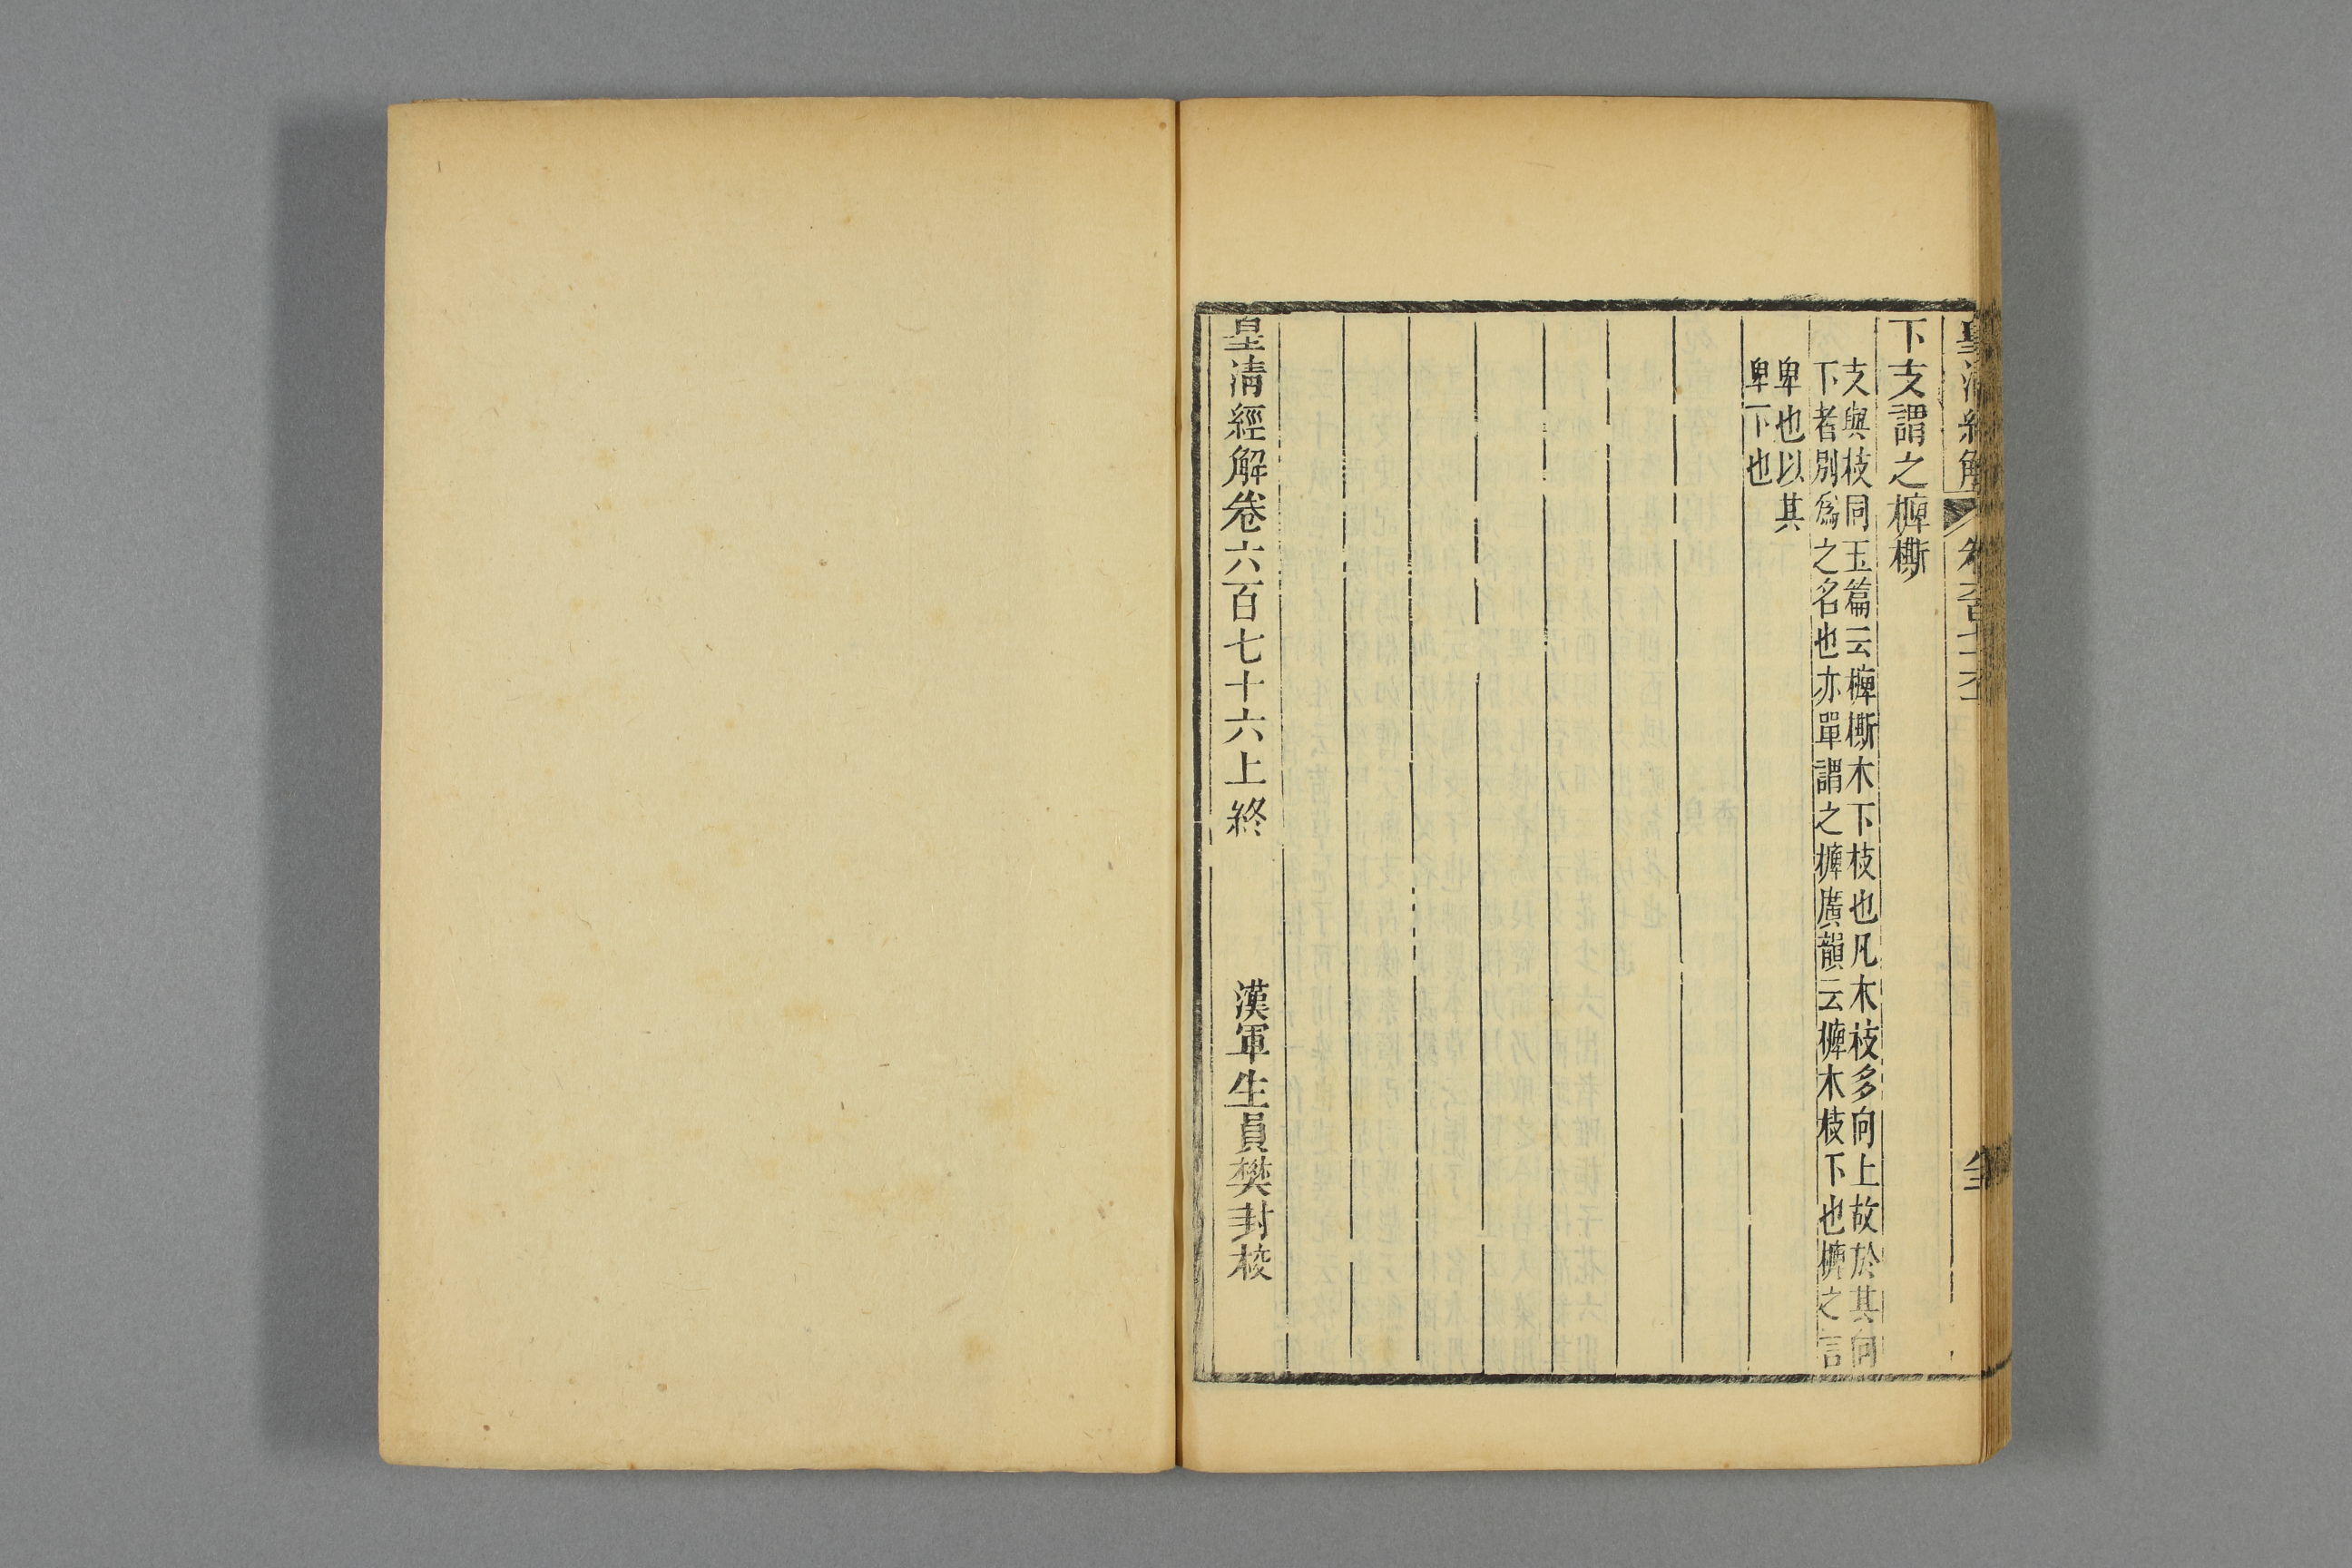 皇清經解
卷六百七十六上
下支謂之椑㯕
支與枝同玉篇云椑㯕木下枝也凡木枝多向上故於其向
下者別為之名也亦單謂之椑廣韻云椑木枝下也椑之言
卑也以其
卑下也
皇清經解卷六百七十六上終
漢軍生員樊封校